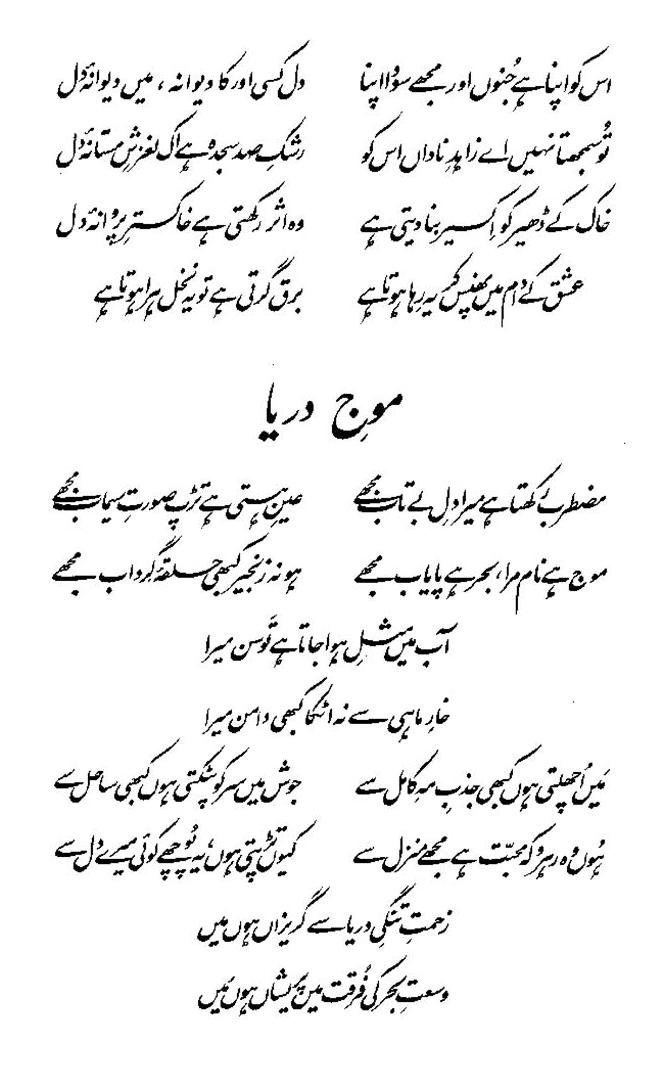 اس کو اپنا ہے جُنوں اور مجھے سودا اپنا دل کسی اور کا دیوانہ ، میں دیوانۂ دل
تُو سمجھتا نہیں اے زاہدِ ناداں اس کو رشکِ صد سجدہ ہے اک لغزشِ مستانۂ دل
خاک کے ڈھیر کو اِکسیر بنا دیتی ہے وہ اثر رکھتی ہے خاکسترِ پروانۂ دل
عشق کے دام میں پھنس کر یہ رہا ہوتا ہے برق گرتی ہے تو یہ نخل ہرا ہوتا ہے
موجِ دریا
مضطرب رکھتا ہے میرا دلِ بے تاب مجھے عینِ ہستی ہے تڑپ صورتِ سیماب مجھے
موج ہے نام مرا، بحر ہے پایاب مجھے ہو نہ زنجیر کبھی حلقۂ گرداب مجھے
آب میں مثلِ ہوا جاتا ہے توسن میرا
خارِ ماہی سے نہ اٹکا کبھی دامن میرا
مَیں اُچھلتی ہوں کبھی جذبِ مہِ کامل سے جوش میں سر کو پٹکتی ہوں کبھی ساحل سے
ہُوں وہ رہرو کہ محبّت ہے مجھے منزل سے کیوں تڑپتی ہوں، یہ پُوچھے کوئی میرے دل سے
زحمتِ تنگیِ دریا سے گریزاں ہوں میں
وسعتِ بحر کی فُرقت میں پریشاں ہوں مَیں